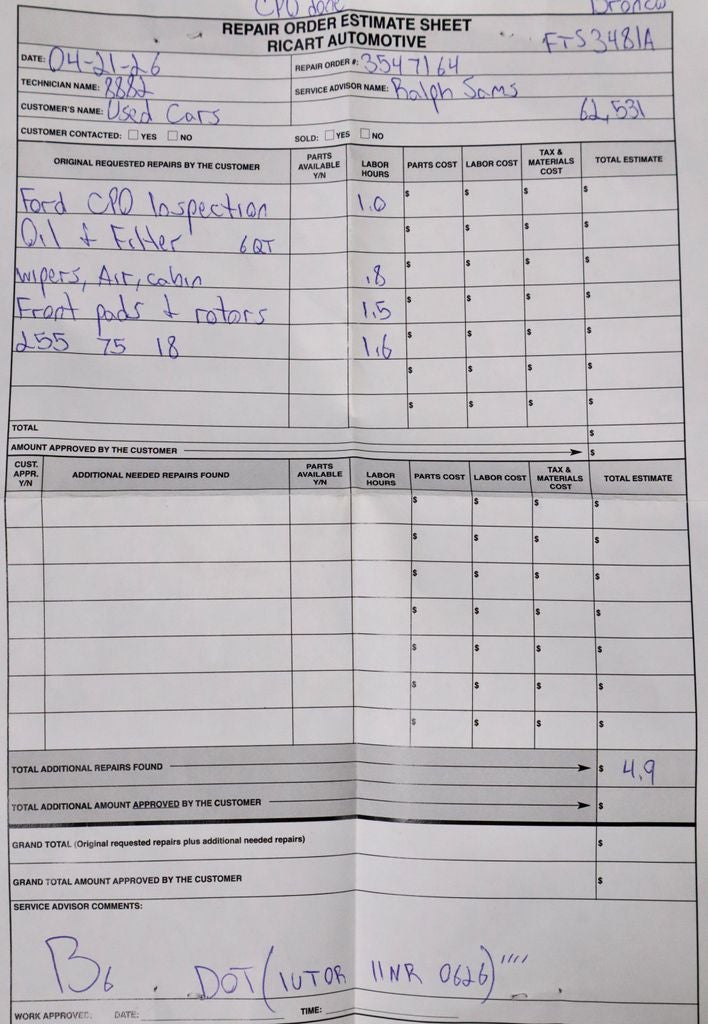 CPO done Bronco
REPAIR ORDER ESTIMATE SHEET
RICART AUTOMOTIVE
FTS3481A
DATE: 04-21-26
REPAIR ORDER #: 3547164
TECHNICIAN NAME: 8882
SERVICE ADVISOR NAME: Ralph Sams
CUSTOMER'S NAME: Used Cars
62,531
CUSTOMER CONTACTED: ☐ YES ☐ NO
SOLD: ☐ YES ☐ NO
ORIGINAL REQUESTED REPAIRS BY THE CUSTOMER PARTS AVAILABLE Y/N LABOR HOURS PARTS COST LABOR COST TAX & MATERIALS COST TOTAL ESTIMATE
Ford CPO Inspection 1.0 $ $ $ $
Oil & Filter 6QT $ $ $ $
wipers, Air, cabin .8 $ $ $ $
Front pads & rotors 1.5 $ $ $ $
255 75 18 1.6 $ $ $ $
$ $ $ $
$ $ $ $
TOTAL $
AMOUNT APPROVED BY THE CUSTOMER $
CUST. APPR. Y/N ADDITIONAL NEEDED REPAIRS FOUND PARTS AVAILABLE Y/N LABOR HOURS PARTS COST LABOR COST TAX & MATERIALS COST TOTAL ESTIMATE
$ $ $ $
$ $ $ $
$ $ $ $
$ $ $ $
$ $ $ $
$ $ $ $
$ $ $ $
TOTAL ADDITIONAL REPAIRS FOUND $ 4.9
TOTAL ADDITIONAL AMOUNT APPROVED BY THE CUSTOMER $
GRAND TOTAL (Original requested repairs plus additional needed repairs) $
GRAND TOTAL AMOUNT APPROVED BY THE CUSTOMER $
SERVICE ADVISOR COMMENTS:
B6 . DOT (1UTOR 11NR 0626) ''''
WORK APPROVED: DATE: TIME: